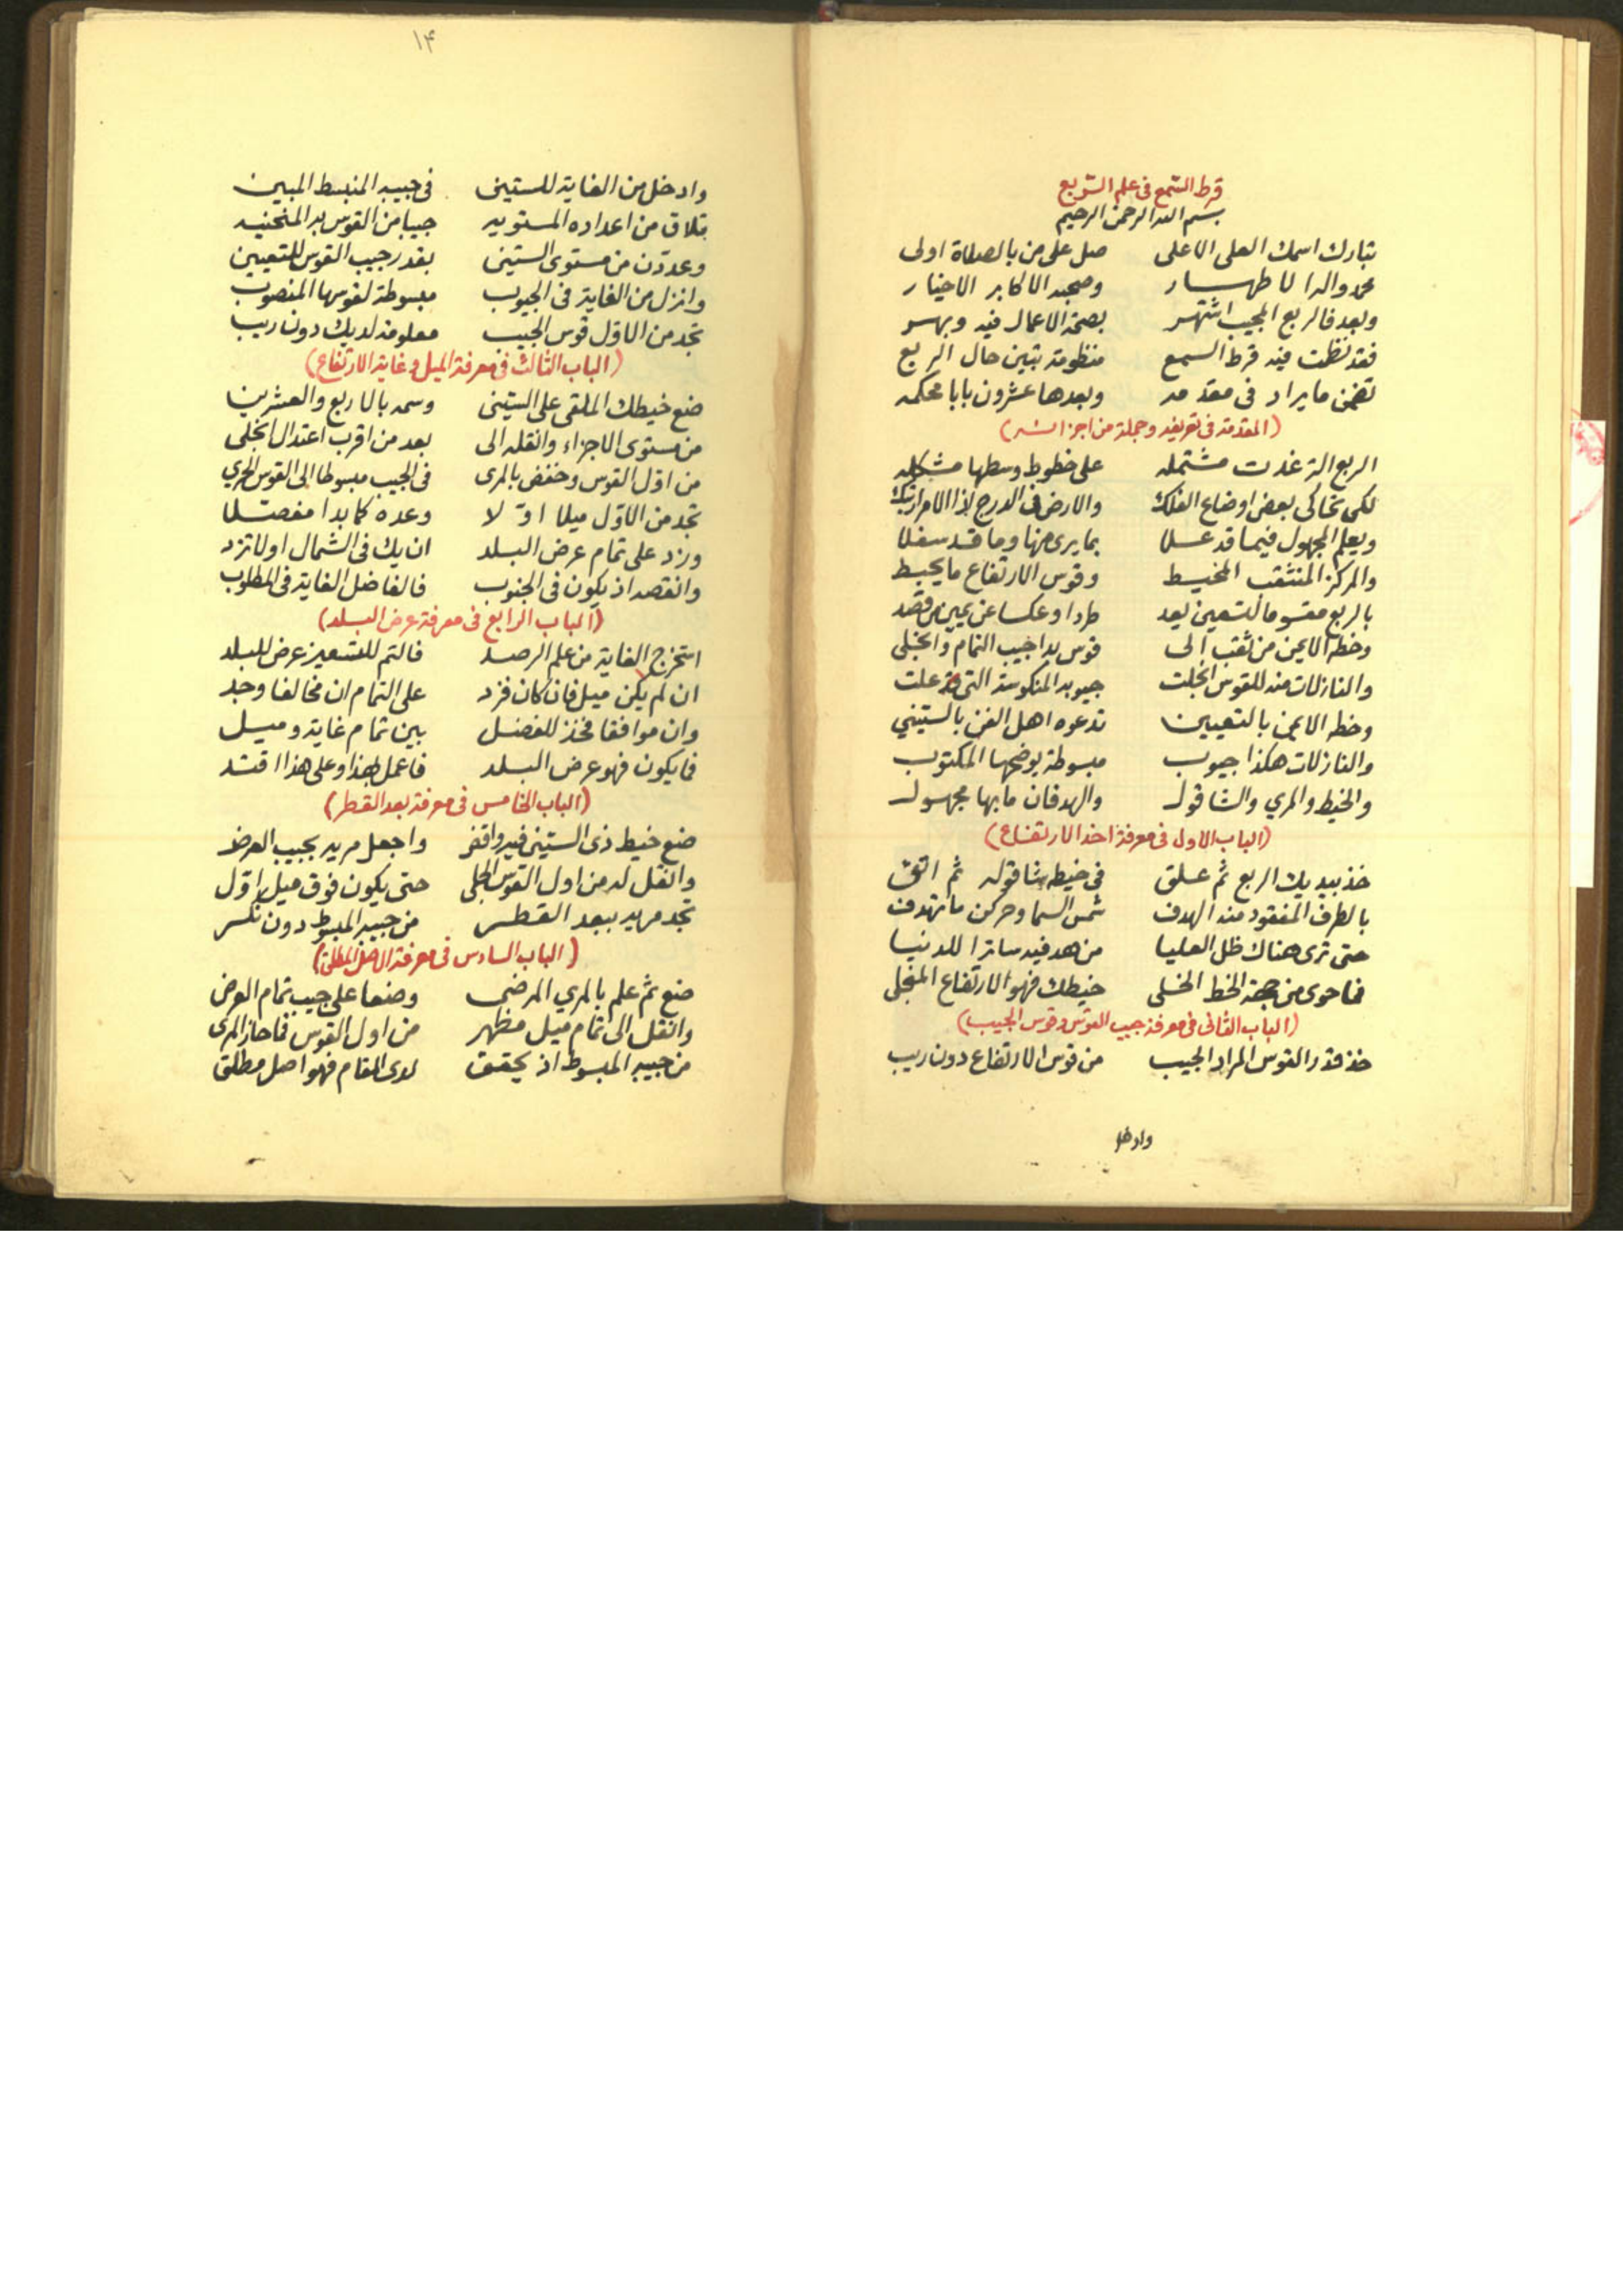 قرط السمع في علم التربيع
بسم الله الرحمن الرحيم
تبارك اسمك العلي الاعلى صل على من بالصلاة اولى
محمد واله الاطهار وصحبه الاكابر الاخيار
وبعد فالربع المجيب اشتهر بصحة الاعمال فيه وبهر
فقد نظمت فيه قرط السمع منظومة تبين حال الربع
تضمن ما يراد في مقدمه وبعدها عشرون بابا محكمه
(المقدمة في تعريفه وجملة من اجزائه)
الربع الة غدت مشتمله على خطوط وسطها مشكله
لكي تحاكي بعض اوضاع الفلك والارض في الدرج اذا الامر ارتبك
ويعلم المجهول فيما قد علا بما يرى منها وما قد سفلا
والمركز المنثقب المخيط وقوس الارتفاع ما يحيط
بالربع مقسوما لتسعين يعد طردا وعكسا عن يمين من قصد
وخطه الايمن من ثقب الى قوس بدا جيب التمام وانجلى
والنازلات منه للقوس انجلت جيوبه المنكوسة التي قد علت
وخطه الايمن بالتعيين تدعوه اهل الفن بالستيني
والنازلات هكذا جيوب مبسوطة يوضحها المكتوب
والخيط والمري والشاقول والهدفان ما بها مجهول
(الباب الاول في معرفة اخذ الارتفاع)
خذ بيديك الربع ثم علق في خيطه شاقوله ثم اتق
بالطرف المفقود منه الهدف شمس السما وحركن ما تهدف
حتى ترى هناك ظل العليا من هدفيه ساترا للدنيا
فما حوى من جهة الخط الخلي خيطك فهو الارتفاع المنجلي
(الباب الثاني في معرفة جيب القوس وقوس الجيب)
خذ قدر القوس المراد الجيب من قوس الارتفاع دون ريب
وادخل
١٤
وادخل من الغاية للستيني في جيبه المنبسط المبين
تلاق من اعداده المستويه جيبا من القوس بد المنحنيه
وعددن من مستوى الستيني بقدر جيب القوس للتعيين
وانزل من الغاية في الجيوب مبسوطة لقوسها المنصوب
تجد من الاول قوس الجيب معلومة لديك دون ريب
(الباب الثالث في معرفة الميل وغاية الارتفاع)
ضع خيطك الملقى على الستيني وسمه بالاربع والعشرين
من مستوى الاجزاء وانقله الى بعد من اقرب اعتدال انجلى
من اول القوس وخفض بالمري في الجيب مبسوطا الى القوس الحري
تجد من الاول ميلا اولا وعده كما بدا مفصلا
وزد على تمام عرض البلد ان يك في الشمال اولا تزد
وانقصه اذ يكون في الجنوب فالفاضل الغاية في المطلوب
(الباب الرابع في معرفة عرض البلد)
استخرج الغاية من علم الرصد فالتم للتسعين عرض للبلد
ان لم يكن ميل فان كان فزد على التمام ان مخالفا وجد
وان موافقا فخذ للفضل بين تمام غاية وميل
فما يكون فهو عرض البلد فاعمل بهذا وعلى هذا اقتد
(الباب الخامس في معرفة بعد القطر)
ضع خيط ذي الستيني فيه واقض واجعل مريه بجيب العرض
وانقل له من اول القوس الجلي حتى يكون فوق ميل اول
تجد مريه ببعد القطر من جيبه المبسوط دون نكر
(الباب السادس في معرفة الاصل المطلق)
ضع ثم علم بالمري المرضي وضعا على جيب تمام العرض
وانقل الى تمام ميل مظهر من اول القوس فما حاز المري
من جيبه المبسوط اذ يحقق لدى المقام فهو اصل مطلق